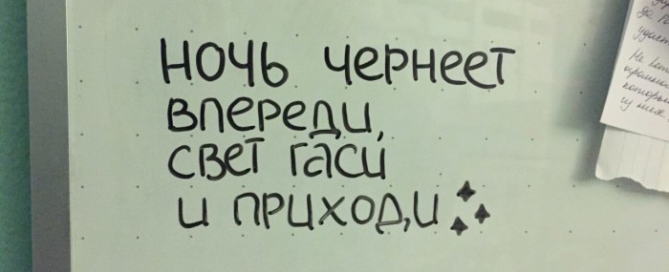 ночь чернеет
впереди,
свет гаси
и приходи